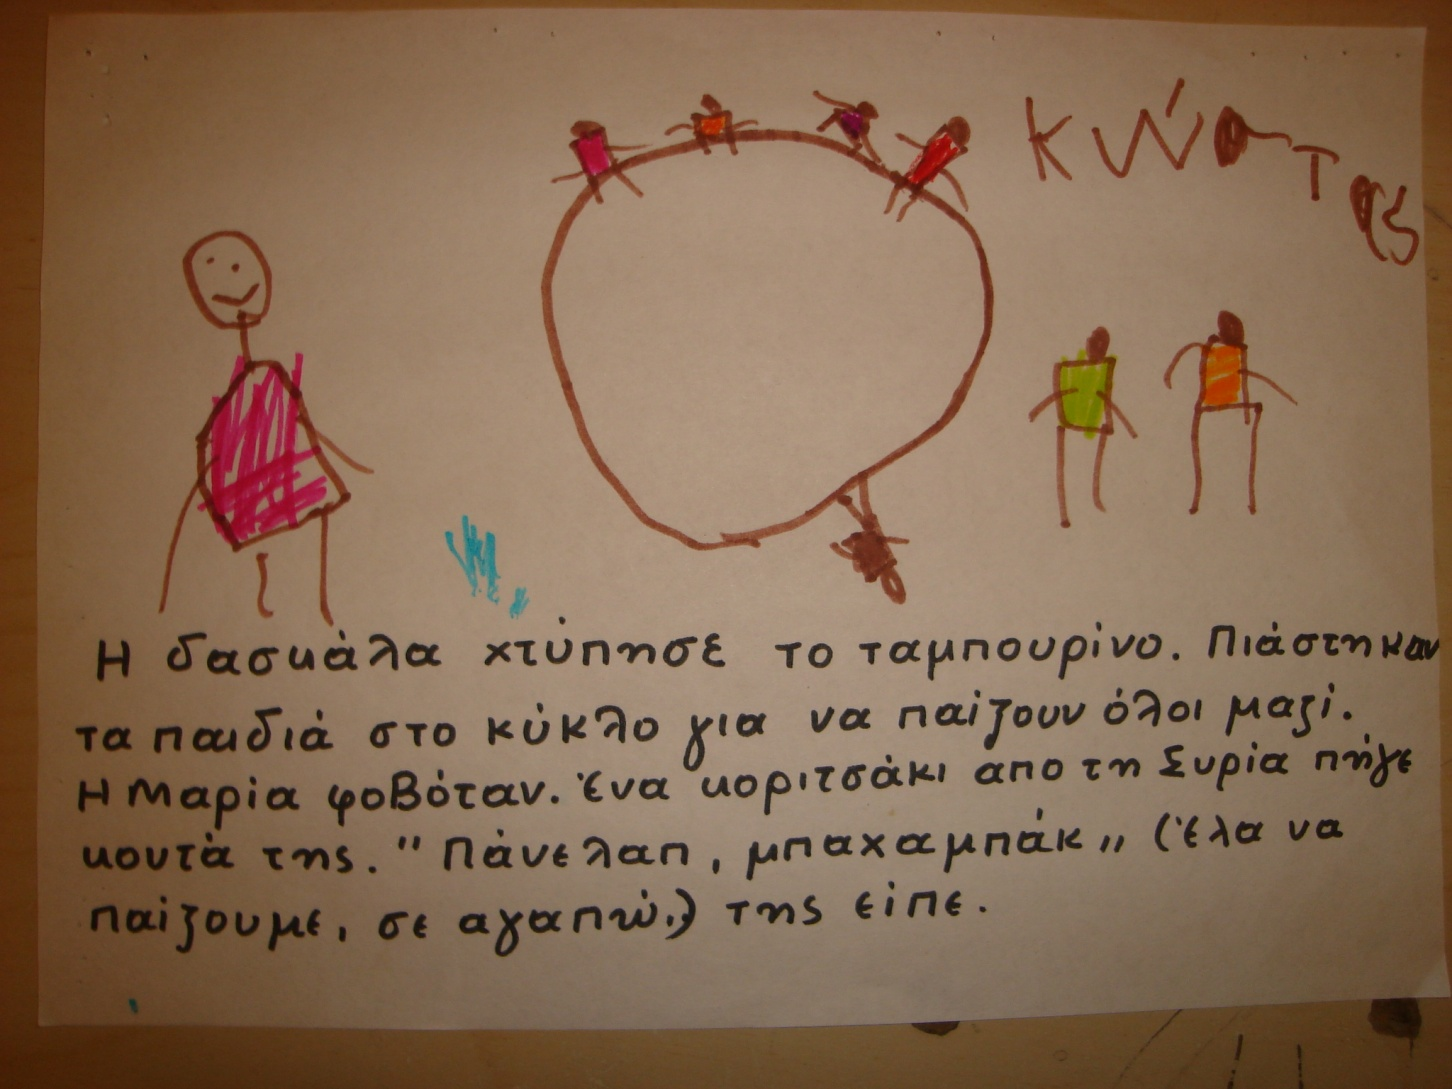 Κώστας
Η δασκάλα χτύπησε το ταμπουρίνο. Πιάστηκαν
τα παιδιά στο κύκλο για να παίζουν όλοι μαζί.
Η Μαρία φοβόταν. Ένα κοριτσάκι απο τη Συρία πήγε
κοντά της. "Πάνελαπ, μπαχαμπάκ,, (Έλα να
παίζουμε, σε αγαπώ.) της είπε.